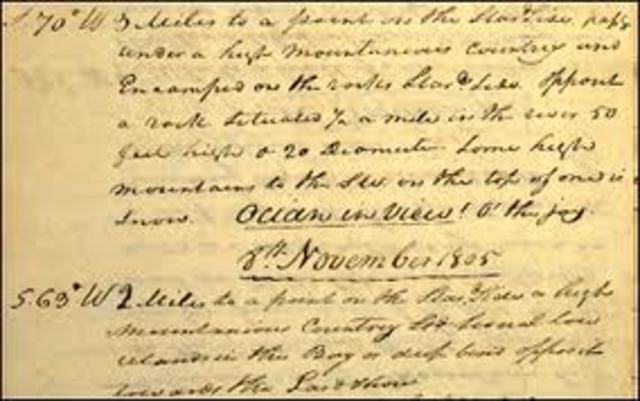 S. 70° W 3 Miles to a point on the Stard Side, passg
under a high Mountaneous Countrey and
Encamped on the rocks Stard Side opposit
a rock Situated ½ a mile in the river 50
feet high & 20 Diamuter Some high
mountains to the SW on the top of one is
Snow. Ocian in view! O! the joy.
8th November 1805
S. 63° W 2 Miles to a point on the Stard Side a high
Mountanious Countrey low
Islands in this Bay or deep bend opposit
towards the Lard Shore